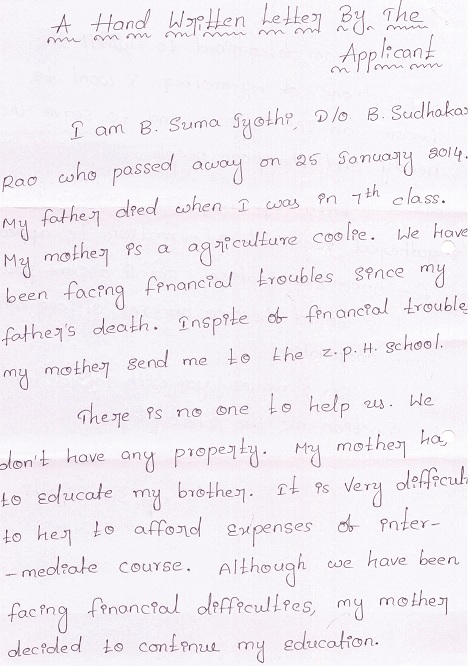 A Hand Written Letter By The
Applicant
I am B. Suma Jyothi, D/o B. Sudhakar
Rao who passed away on 25 January 2014.
My father died when I was in 7th class.
My mother is a agriculture coolie. We Have
been facing financial troubles since my
father's death. Inspite of financial trouble
my mother send me to the Z.P.H. School.
There is no one to help us. We
don't have any property. My mother ha
to educate my brother. It is very difficult
to her to afford expenses of inter-
-mediate course. Although we have been
facing financial difficulties, my mother
decided to continue my education.